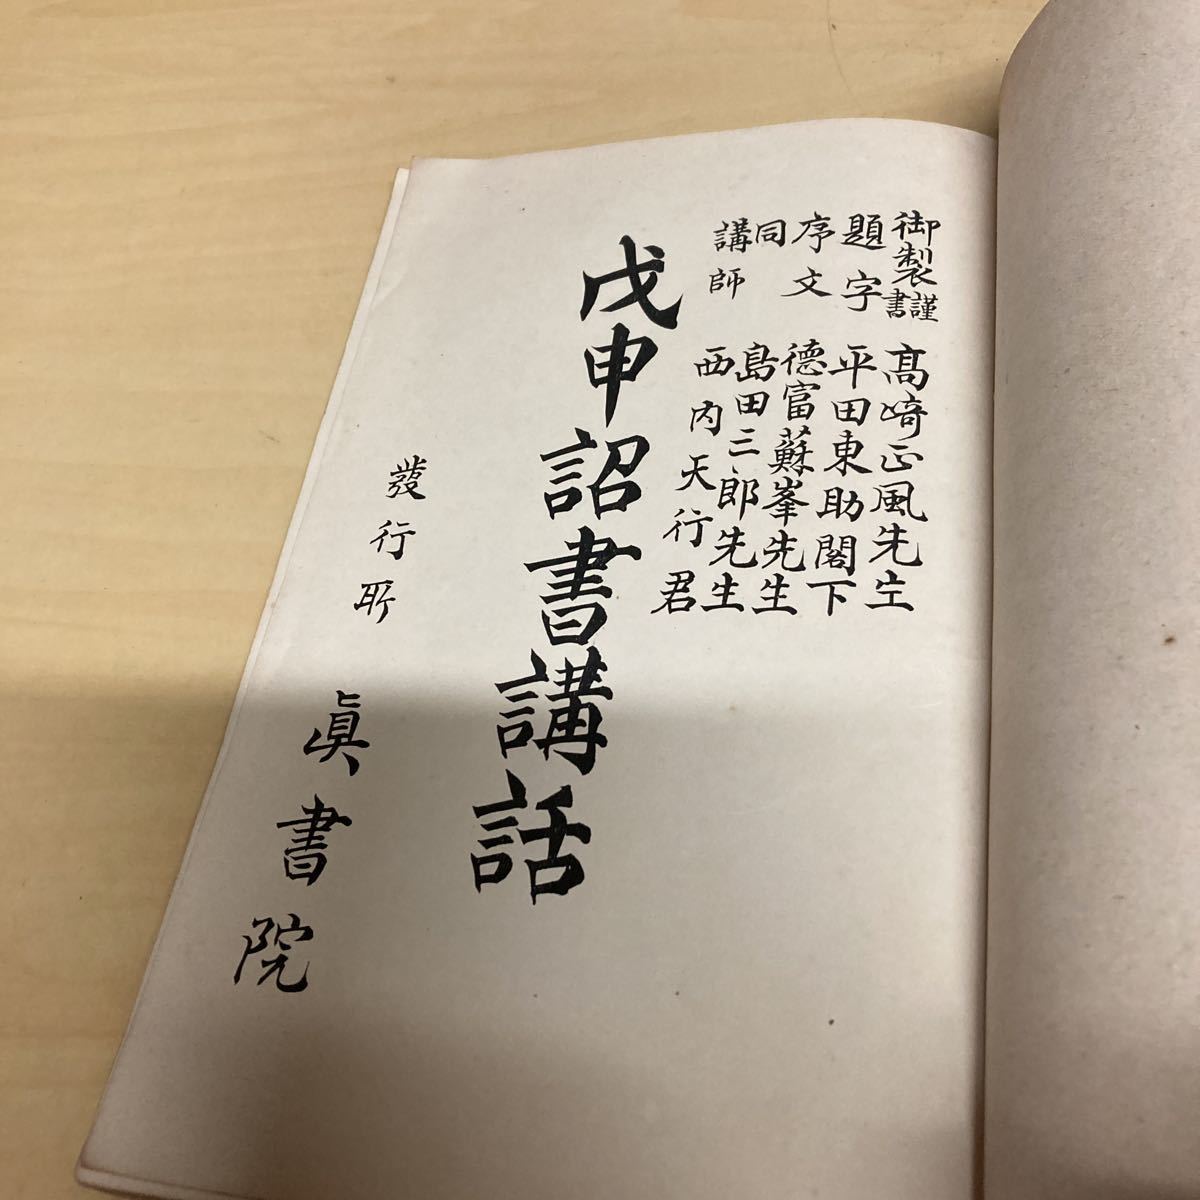 御製謹書 高﨑正風先生
題字 平田東助閣下
序文 德富蘇峯先生
同 島田三郎先生
講師 西内天行君
戊申詔書講話
發行所 眞書院